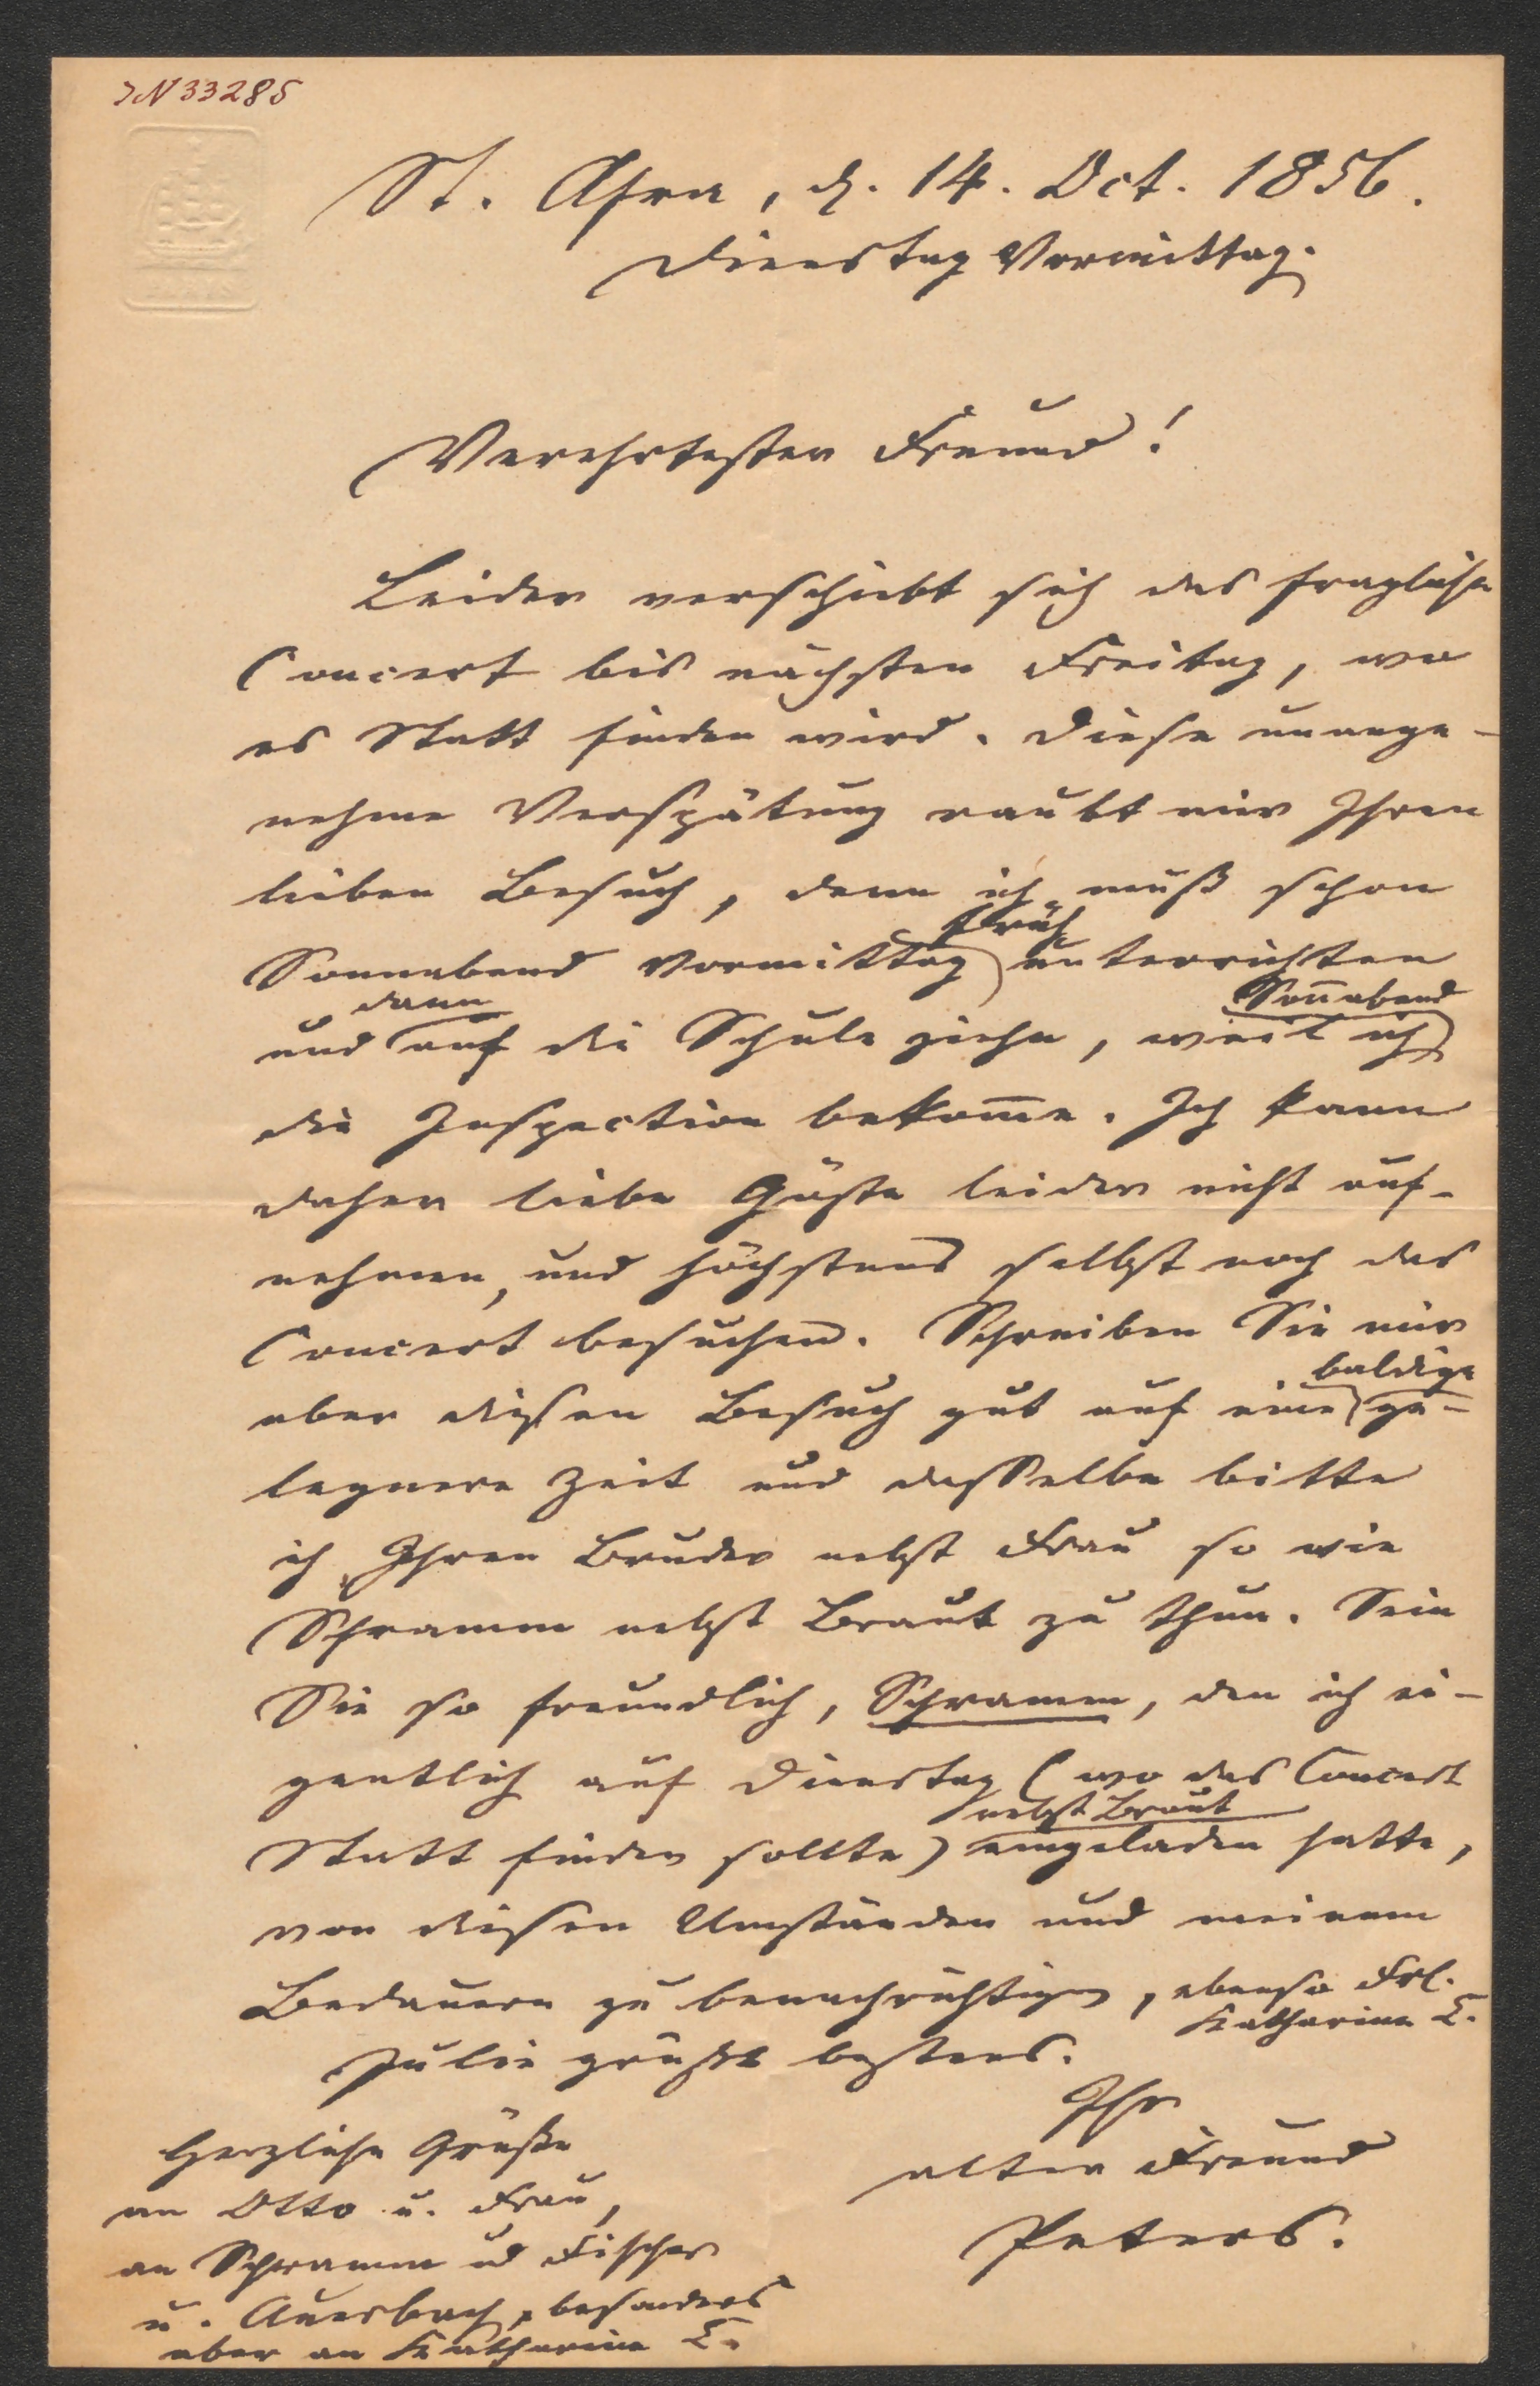 IN 33285
St. Afra, d. 14. Oct. 1856.
Dienstag Vormittag.
Verehrtester Freund!
Leider verschiebt sich das fragliche
Concert bis nächsten Freitag, wo
es Statt finden wird. Diese unange-
nehme Verspätung raubt mir Ihren
lieben Besuch, denn ich muß schon
früh
Sonnabend Vormittag unterrichten
dann Sonnabend
und auf die Schule ziehn, weil ich
die Inspection bekomme. Ich kann
daher liebe Gäste leider nicht auf-
nehmen, und höchstens selbst noch das
Concert besuchen. Schreiben Sie mir
baldige
aber diesen Besuch gut auf eine ge-
legnere Zeit und dasselbe bitte
ich Ihren Bruder nebst Frau so wie
Schramm nebst Braut zu thun. Sein
Sie so freundlich, Schramm, den ich ei-
gentlich auf Dienstag (wo das Concert
nebst Braut
Statt finden sollte) eingeladen hatte,
von diesen Umständen und meinem
Bedauern zu benachrichtigen, ebenso Frl.
Katharine E.
Julie grüßt bestens.
Ihr
alter Freund
Peters.
Herzliche Grüße
an Otto u. Frau,
an Schramm ud Fischer
u. Auerbach, besonders
aber an Katharine E.